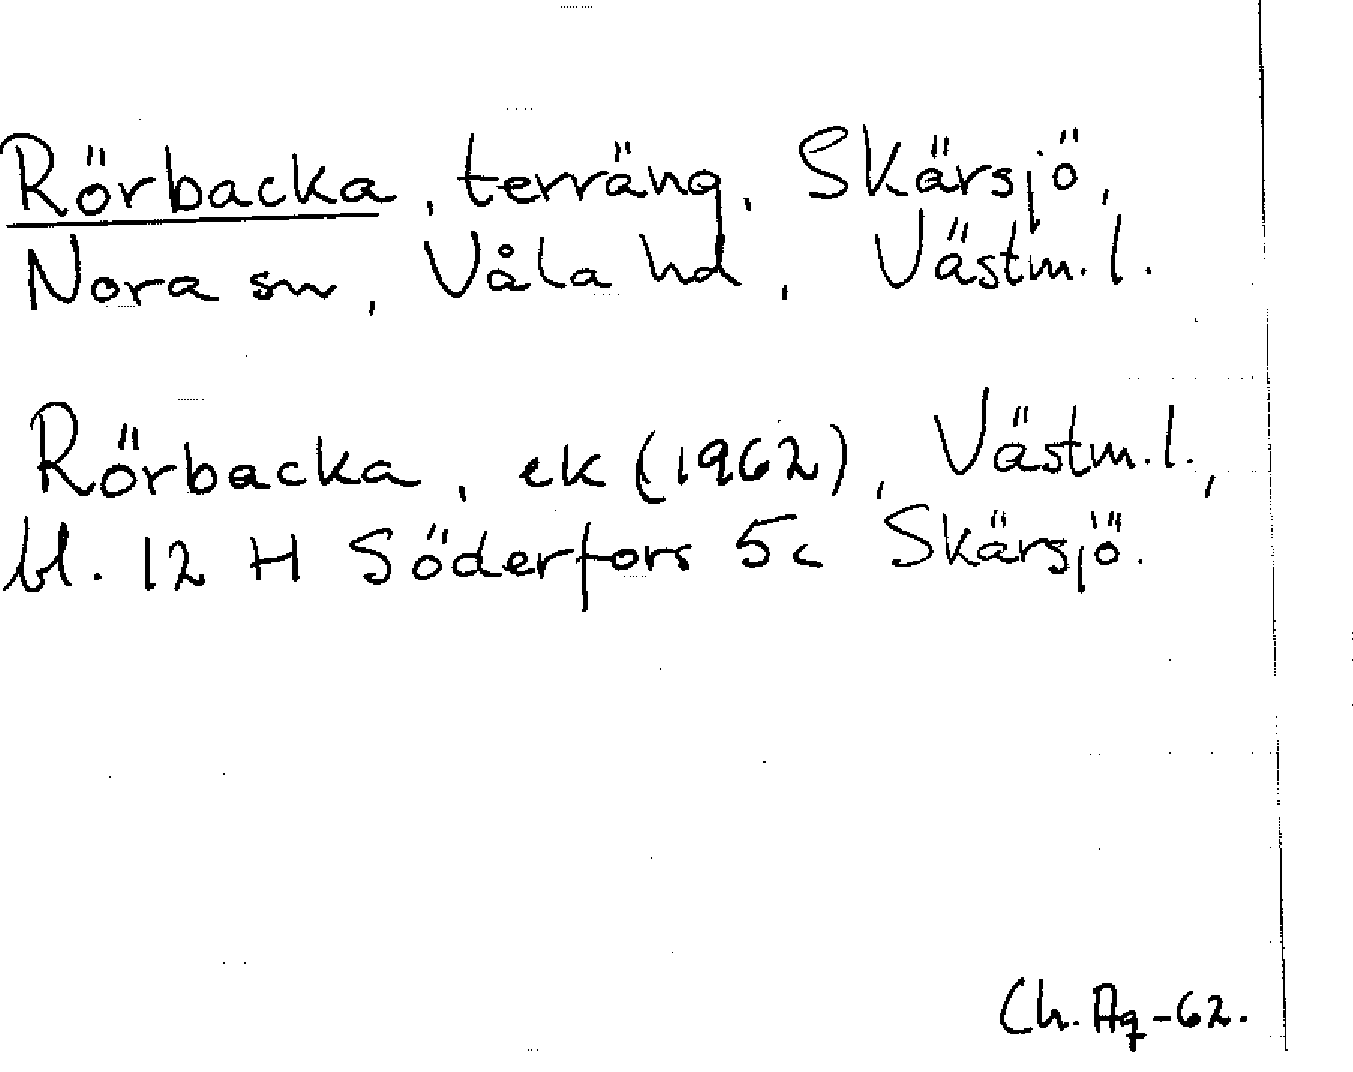 Rörbacka, terräng, Skärsjö,
Nora sn, Våla hd, Västm. l.
Rörbacka, ek (1962), Västm. l.,
bl. 12 H Söderfors 5c Skärsjö.
Ch. Ag -62.